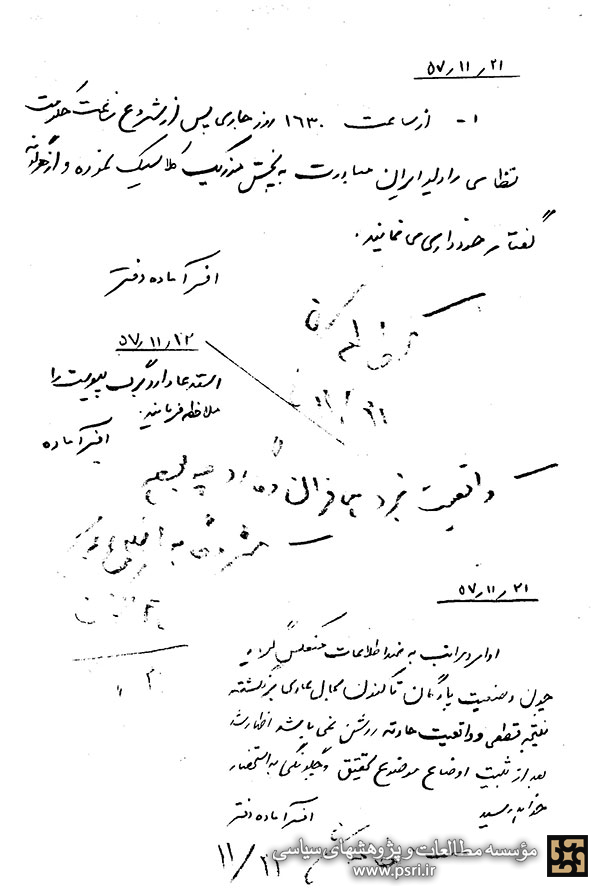 ۵۷٫۱۱٫۲۱
۱- از ساعت ۱۶۳۰ روز جاری پس از شروع ساعت حکومت
نظامی رادیو ایران مبادرت به پخش موزیک کلاسیک نموده و از هرگونه
گفتار خودداری می نمایند.
افسر آماده دفتر
۱۱/۲۱
۵۷٫۱۱٫۲۲
استدعا دارد گزارش پیوست را
ملاحظه فرمایند.
افسر آماده
واقعیت نبرد همافران و گارد چه
۵۷٫۱۱٫۲۱
اوامر مراتب به ضد اطلاعات منعکس گردید
چون وضعیت پادگان تاکنون بحال عادی برنگشته
نتیجه قطعی و واقعیت حادثه روشن نمی باشد اظهار شد
بعد از تثبیت اوضاع موضوع تحقیق و چگونگی به استحضار
خواهد رسید
افسر آماده دفتر
۱۱/۲۲
مؤسسه مطالعات و پژوهشهای سیاسی
www.psri.ir